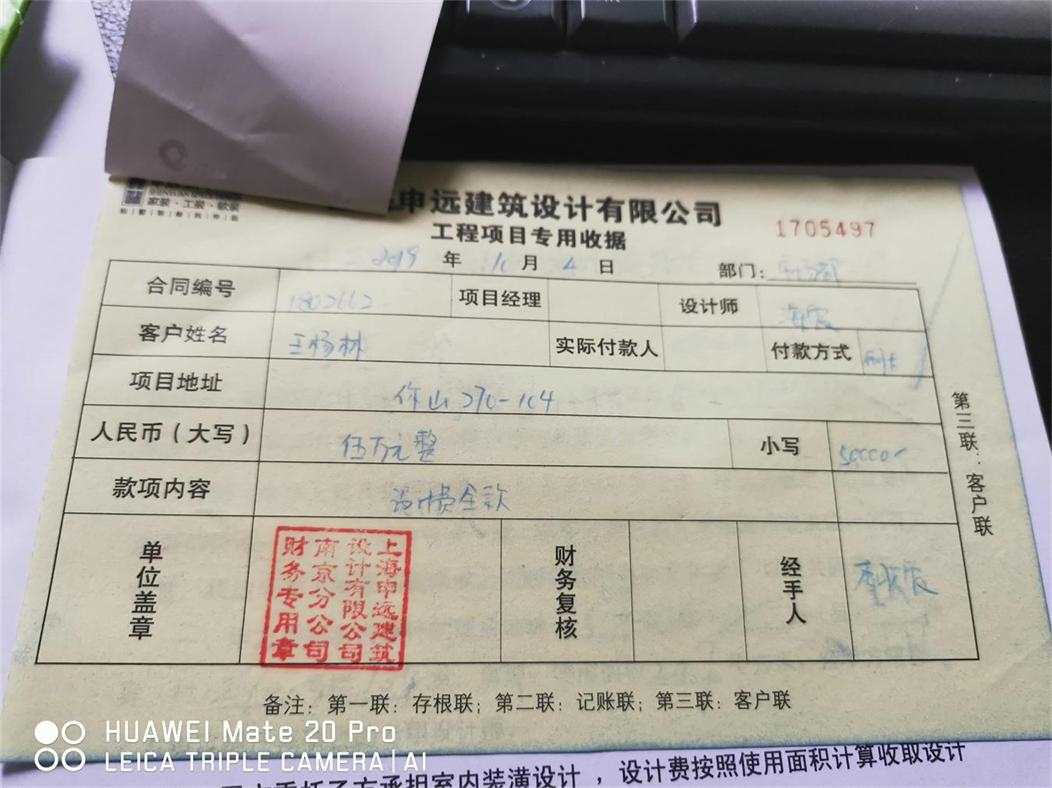 家装·工装·软装
申远建筑设计有限公司
工程项目专用收据
1705497
2019 年 10 月 4 日 部门：
合同编号 1802662 项目经理 设计师
客户姓名 王杨林 实际付款人 付款方式 刷卡
项目地址 作山270-104
人民币（大写） 伍万元整 小写 50000
款项内容 设计费全款
单位盖章 财务复核 经手人
上海申远建筑
设计有限公司
南京分公司
财务专用章
第三联：客户联
备注：第一联：存根联；第二联：记账联；第三联：客户联
HUAWEI Mate 20 Pro
LEICA TRIPLE CAMERA | AI
承担室内装潢设计，设计费按照使用面积计算收取设计